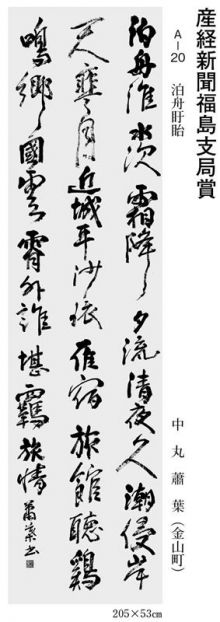 産経新聞福島支局賞
A-20 泊舟盱眙
中丸蕭葉(金山町)
泊舟淮水次霜降夕流清夜久潮侵岸
天寒月近城平沙依雁宿旅館聽鷄
鳴鄉國雲霄外誰堪羈旅情 蕭葉書
205×53cm